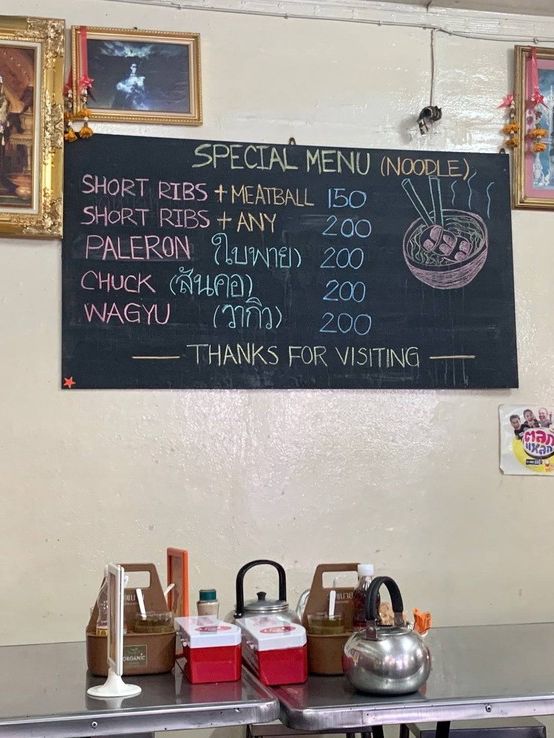 SPECIAL MENU (NOODLE)
SHORT RIBS + MEATBALL 150
SHORT RIBS + ANY 200
PALERON ใบพาย) 200
CHUCK (สันคอ) 200
WAGYU (วากิว) 200
THANKS FOR VISITING
ตลก
ORGANIC